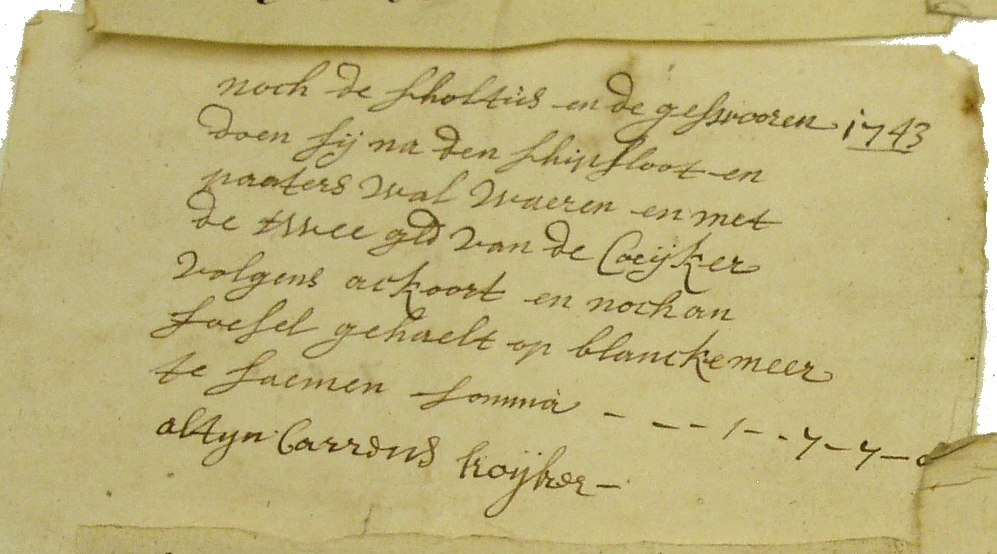 noch de scholtus en de geswooren 1743
doen sij na den schipsloot en
paaters wal waeren en met
de twee gld van de Coeijker
volgens ackoort en noch an
foesel gehaelt op blanckemeer
te saemen somma - - - 1 - - 7 - 7 -
altyn Carrdus koijker -